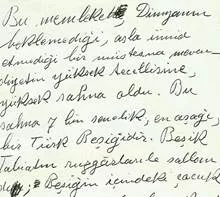 Bu memleket, Dünyanın
beklemediği, asla ümid
etmediği bir müstesna mevcu-
diyetin yüksek tecellisine,
yüksek sahna oldu. Bu
sahna 7 bin senelik, en aşağı,
bir Türk Beşiğidir. Beşik
tabiatın rüzgârlarile sallan-
dı; Beşiğin içindeki çocuk